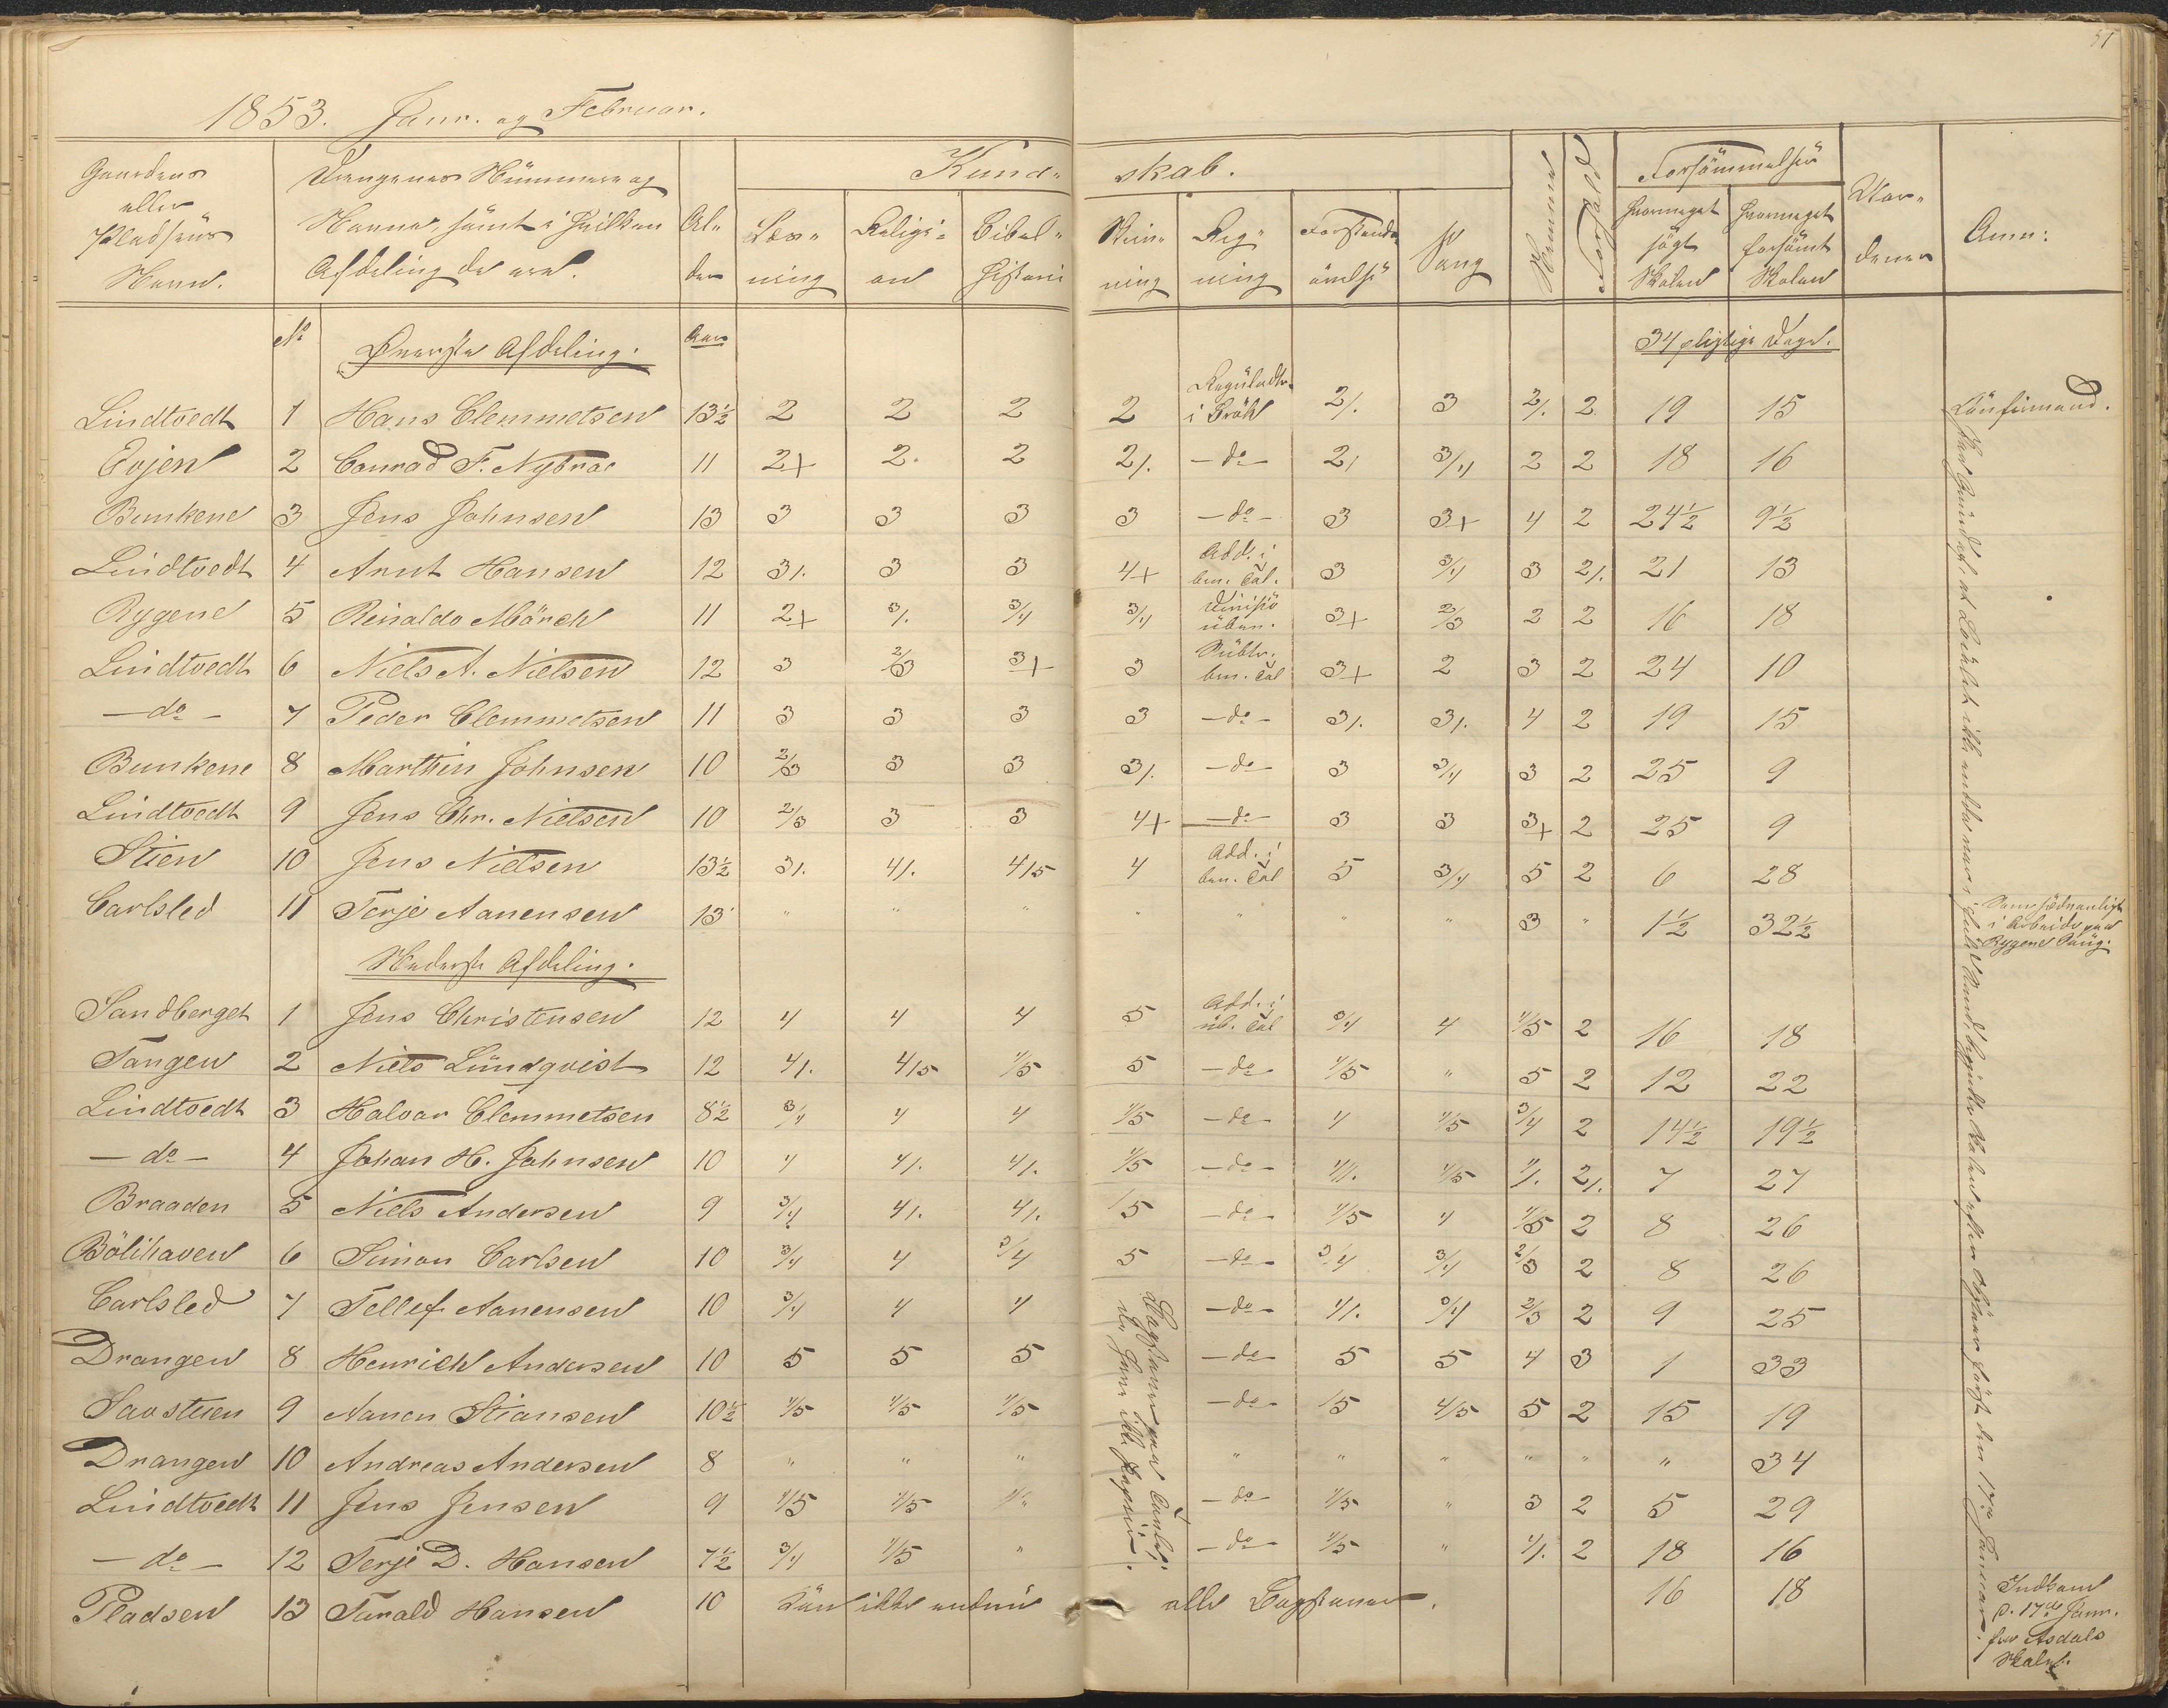 51
1853. Janr. og Februar.
Gaardens eller Pladsens Navn.
Drengenes Nummere og Navne, samt i hvilken Afdeling de ere.
Alder
Kundskab.
Læsning
Religion
Bibelhistorie
Skrivning
Regning
Forstandsövelse
Sang
Forsömmelser
hvormeget sögt Skolen
hvormeget forsömt Skolen
Anm:
No Överste Afdeling. Aar 34 pligtige Dage.
Lindtvedt 1 Hans Clemmetsen 13½ 2 2 2 2 Reguladtr. i Bröhk 2/. 3 2/. 2 19 15 Confirmand.
Evjen 2 Conrad F. Nybroe 11 2+ 2. 2 2/. - do - 2/ 3/4 2 2 18 16
Bunkene 3 Jens Johnsen 13 3 3 3 3 - do - 3 3+ 4 2 24½ 9½
Lindtvedt 4 Arnt Hansen 12 3/. 3 3 4+ Add. i ben. Tal. 3 3/4 3 2/. 21 13
Rygene 5 Reinaldo Mörch 11 2+ 3/. 3/4 3/4 Divisio uben. 3+ 2/3 2 2 16 18
Lindtvedt 6 Niels A. Nielsen 12 3 2/3 3+ 3 Subtr. ben. Tal 3+ 2 3 2 24 10
- do - 7 Peder Clemmetsen 11 3 3 3 3 - do - 3/. 3/. 4 2 19 15
Bunkene 8 Marthin Johnsen 10 2/3 3 3 3/. - do - 3 3/4 3 2 25 9
Lindtvedt 9 Jens Chr. Nielsen 10 2/3 3 3 4+ - do - 3 3 3+ 2 25 9
Stien 10 Jens Nielsen 13½ 3/. 4/. 4/5 4 Add. i ben. Tal 5 3/4 5 2 6 28
Carlsled 11 Terje Aanensen 13 " " " " " " " 3 " 1½ 32½ Som sædvanligt i Arbeide paa Rygene Brug.
Nederste Afdeling.
Sandberget 1 Jens Christensen 12 4 4 4 5 Add. i ub. Tal 3/4 4 4/5 2 16 18
Tangen 2 Niels Lundqvist 12 4/. 4/5 4/5 5 - do - 4/5 " 5 2 12 22
Lindtvedt 3 Halvor Clemmetsen 8½ 3/4 4 4 4/5 - do - 4 4/5 3/4 2 14½ 19½
- do - 4 Johan H. Johnsen 10 4 4/. 4/. 4/5 - do - 4/. 4/5 4/. 2/. 7 27
Braaden 5 Niels Andersen 9 3/4 4/. 4/. /5 - do - 4/5 4 4/5 2 8 26
Bölihaven 6 Simon Carlsen 10 3/4 4 3/4 5 - do - 3/4 3/4 2/3 2 8 26
Carlsled 7 Tellef Aanensen 10 3/4 4 4 - do - 4/. 3/4 2/3 2 9 25
Drangen 8 Henrich Andersen 10 5 5 5 - do - 5 5 4 3 1 33
Savstuen 9 Aanen Stiansen 10½ 4/5 4/5 4/5 - do - /5 4/5 5 2 15 19
Drangen 10 Andreas Andersen 8 " " " " " " " " " 34
Lindtvedt 11 Jens Jensen 9 4/5 4/5 - do - 4/5 " 3 2 5 29
- do - 12 Terje D. Hansen 7½ 3/4 4/5 " - do - 4/5 " 4/. 2 18 16
Pladsen 13 Tarald Hansen 10 Kan ikke endnu alle Bogstaver. 16 18 Indkom d. 17de Janr. fra Asdals Skole.
Bogstaver paa Tavle; de have ikke Papir.